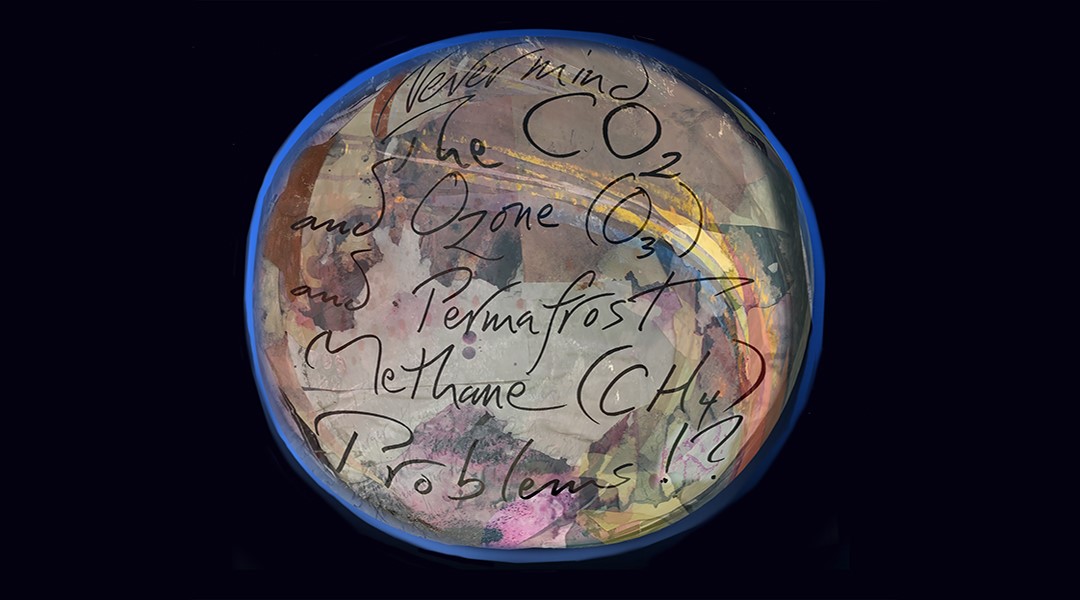 Nevermind
The CO₂
and Ozone (O₃)
and Permafrost
Methane (CH₄)
Problems!?